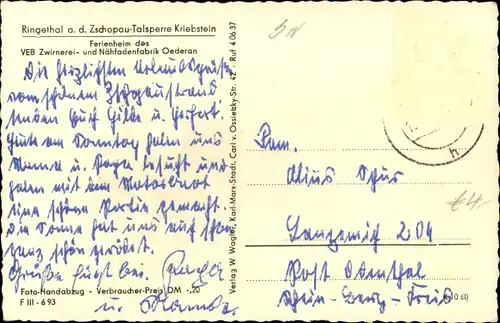 Ringethal a. d. Zschopau-Talsperre Kriebstein
Ferienheim des
VEB Zwirnerei- und Nähfadenfabrik Oederan
Die herzlichsten Urlaubsgrüße
vom schönen Zschopaustrand
senden Euch Gilla u. Gerhart.
Heute am Sonntag haben uns
Mama u. Papa besucht und
haben mit dem Motorboot
eine schöne Partie gemacht.
Die Sonne hat uns auch schon
ganz schön gerötet.
Grüße fügt bei.
u.
Foto-Handabzug - Verbraucher-Preis DM -,20
F III - 6 93
Verlag W. Wagler, Karl-Marx-Stadt, Carl v. Ossietzky-Str. 42 - Ruf 4 06 37
Fam.
Alius Schur
Langemich 204
Post Odenthal
Rhein-Berg-Kreis
€4.-